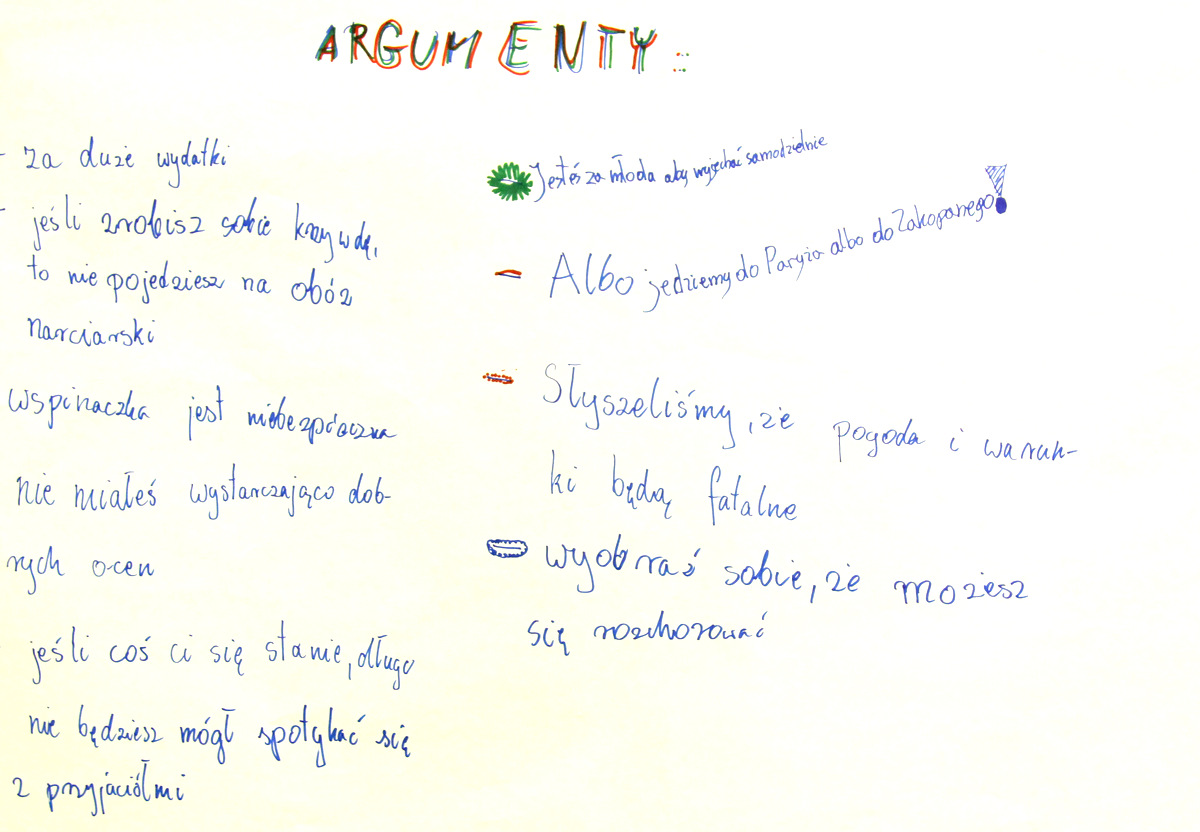 ARGUMENTY:
- za duże wydatki
- jeśli zrobisz sobie krzywdę,
to nie pojedziesz na obóz
narciarski
wspinaczka jest niebezpieczna
nie miałeś wystarczająco dob-
rych ocen
jeśli coś ci się stanie, długo
nie będziesz mógł spotykać się
z przyjaciółmi
Jesteś za młoda aby wyjechać samodzielnie
- Albo jedziemy do Paryża albo do Zakopanego!
- Słyszeliśmy, że pogoda i warun-
ki będą fatalne
- wyobraź sobie, że możesz
się rozchorować